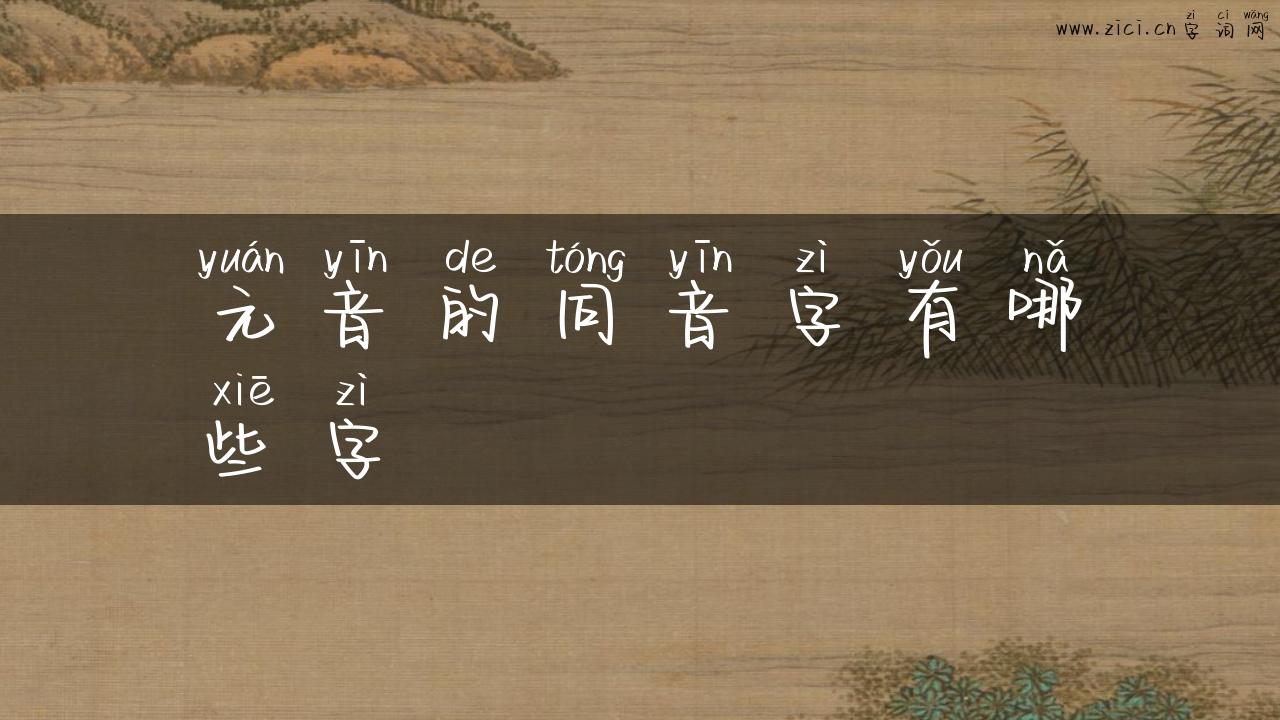 zì cí wǎng
www.zici.cn 字 词 网
yuán yīn de tóng yīn zì yǒu nǎ
元 音 的 同 音 字 有 哪
xiē zì
些 字